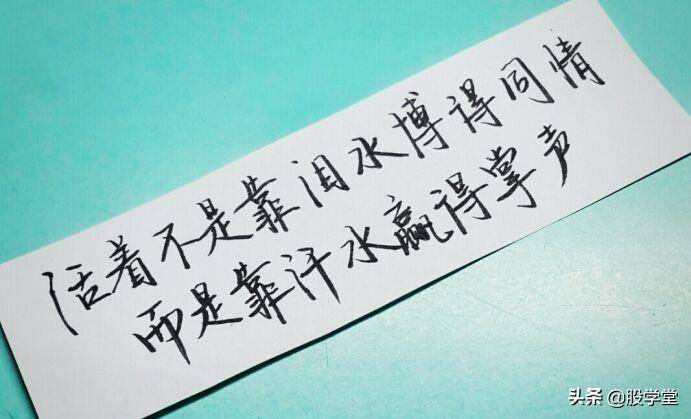 活着不是靠泪水博得同情
而是靠汗水赢得掌声
头条 @股学堂